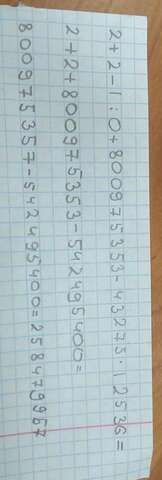 2+2-1:0+800975353-43275·12536=
2+2+800975353-542495400=
800975357-542495400=258479957